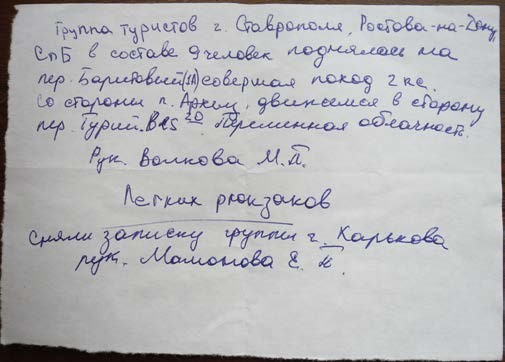 Группа туристов г. Ставрополя, Ростова-на-Дону,
СПБ в составе 9 человек поднялась на
пер. Баритовый (1А) совершая поход 2 кс.
Со стороны п. Архыз, движемся в сторону
пер. Турий. В 15 20. Переменная облачность.
Рук. Волкова М.П.
Легких рюкзаков
Сняли записку группы г. Харькова
рук. Мамонова Е. Н.